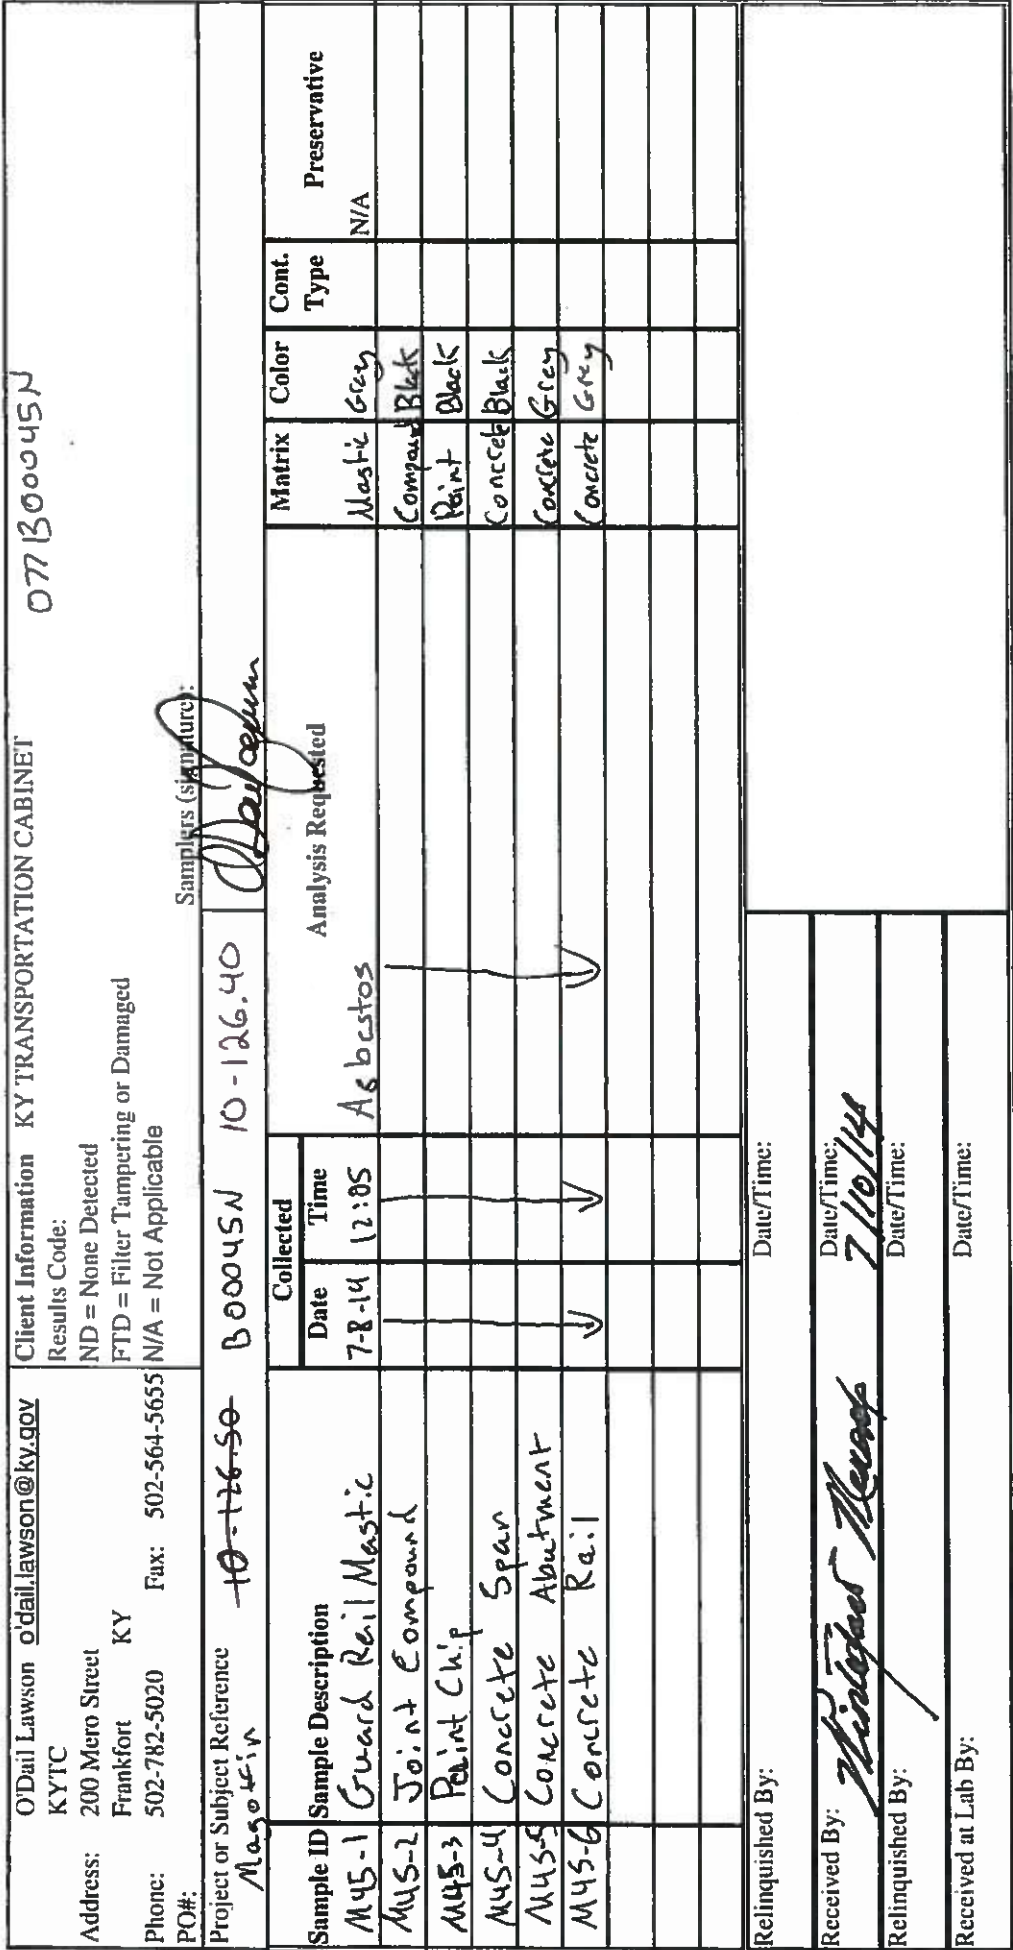 O'Dail Lawson o'dail.lawson@ky.gov
KYTC
Address: 200 Mero Street
Frankfort KY
Phone: 502-782-5020 Fax: 502-564-5655
PO#:
Client Information KY TRANSPORTATION CABINET 077B00045N
Results Code:
ND = None Detected
FTD = Filter Tampering or Damaged
N/A = Not Applicable
Samplers (signature):
Project or Subject Reference 10-126.50 B0045N 10-126.40
Magoffin
Sample ID Sample Description Collected Analysis Requested Matrix Color Cont. Type Preservative
Date Time
M45-1 Guard Rail Mastic 7-8-14 12:05 Asbestos Mastic Grey N/A
M45-2 Joint Compound Compound Black
M45-3 Paint Chip Paint Black
M45-4 Concrete Span Concrete Black
M45-5 Concrete Abutment Concrete Grey
M45-6 Concrete Rail Concrete Grey
Relinquished By: Date/Time:
Received By: Date/Time: 7/10/14
Relinquished By: Date/Time:
Received at Lab By: Date/Time: